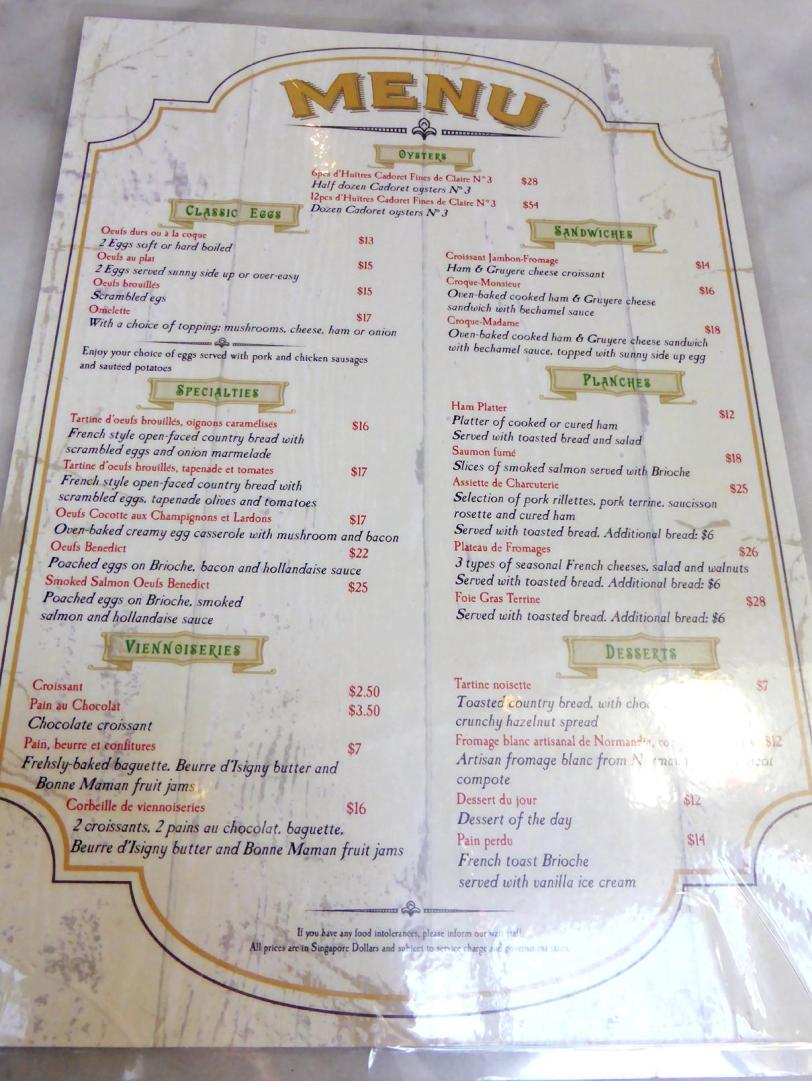 MENU
OYSTERS
6pcs d'Huîtres Cadoret Fines de Claire N°3 $28
Half dozen Cadoret oysters N°3
12pcs d'Huîtres Cadoret Fines de Claire N°3 $54
Dozen Cadoret oysters N°3
CLASSIC EGGS
Oeufs durs ou à la coque $13
2 Eggs soft or hard boiled
Oeufs au plat $15
2 Eggs served sunny side up or over-easy
Oeufs brouillés $15
Scrambled egs
Omelette $17
With a choice of topping: mushrooms, cheese, ham or onion
Enjoy your choice of eggs served with pork and chicken sausages
and sautéed potatoes
SPECIALTIES
Tartine d'oeufs brouillés, oignons caramélisés $16
French style open-faced country bread with
scrambled eggs and onion marmelade
Tartine d'oeufs brouillés, tapenade et tomates $17
French style open-faced country bread with
scrambled eggs, tapenade olives and tomatoes
Oeufs Cocotte aux Champignons et Lardons $17
Oven-baked creamy egg casserole with mushroom and bacon
Oeufs Benedict $22
Poached eggs on Brioche, bacon and hollandaise sauce
Smoked Salmon Oeufs Benedict $25
Poached eggs on Brioche, smoked
salmon and hollandaise sauce
VIENNOISERIES
Croissant $2.50
Pain au Chocolat $3.50
Chocolate croissant
Pain, beurre et confitures $7
Frehsly-baked baguette, Beurre d'Isigny butter and
Bonne Maman fruit jams
Corbeille de viennoiseries $16
2 croissants, 2 pains au chocolat, baguette,
Beurre d'Isigny butter and Bonne Maman fruit jams
SANDWICHES
Croissant Jambon-Fromage $14
Ham & Gruyere cheese croissant
Croque-Monsieur $16
Oven-baked cooked ham & Gruyere cheese
sandwich with bechamel sauce
Croque-Madame $18
Oven-baked cooked ham & Gruyere cheese sandwich
with bechamel sauce, topped with sunny side up egg
PLANCHES
Ham Platter $12
Platter of cooked or cured ham
Served with toasted bread and salad
Saumon fumé $18
Slices of smoked salmon served with Brioche
Assiette de Charcuterie $25
Selection of pork rillettes, pork terrine, saucisson
rosette and cured ham
Served with toasted bread. Additional bread: $6
Plateau de Fromages $26
3 types of seasonal French cheeses, salad and walnuts
Served with toasted bread. Additional bread: $6
Foie Gras Terrine $28
Served with toasted bread. Additional bread: $6
DESSERTS
Tartine noisette $7
Toasted country bread, with
crunchy hazelnut spread
Fromage blanc artisanal de Normandie, $12
Artisan fromage blanc from
compote
Dessert du jour $12
Dessert of the day
Pain perdu $14
French toast Brioche
served with vanilla ice cream
If you have any food intolerances, please inform our wait staff.
All prices are in Singapore Dollars and subject to service charge and government taxes.